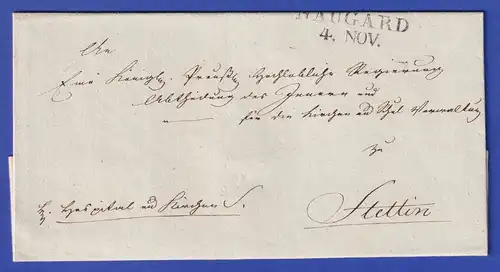 NAUGARD
4. NOV.
An
Eine Königl. Preußl. Hochlöbliche Regierung
Abtheilung des Innern und
für die Kirchen und Schul Verwaltung
zu
Hospital und Kirchen S.
Stettin